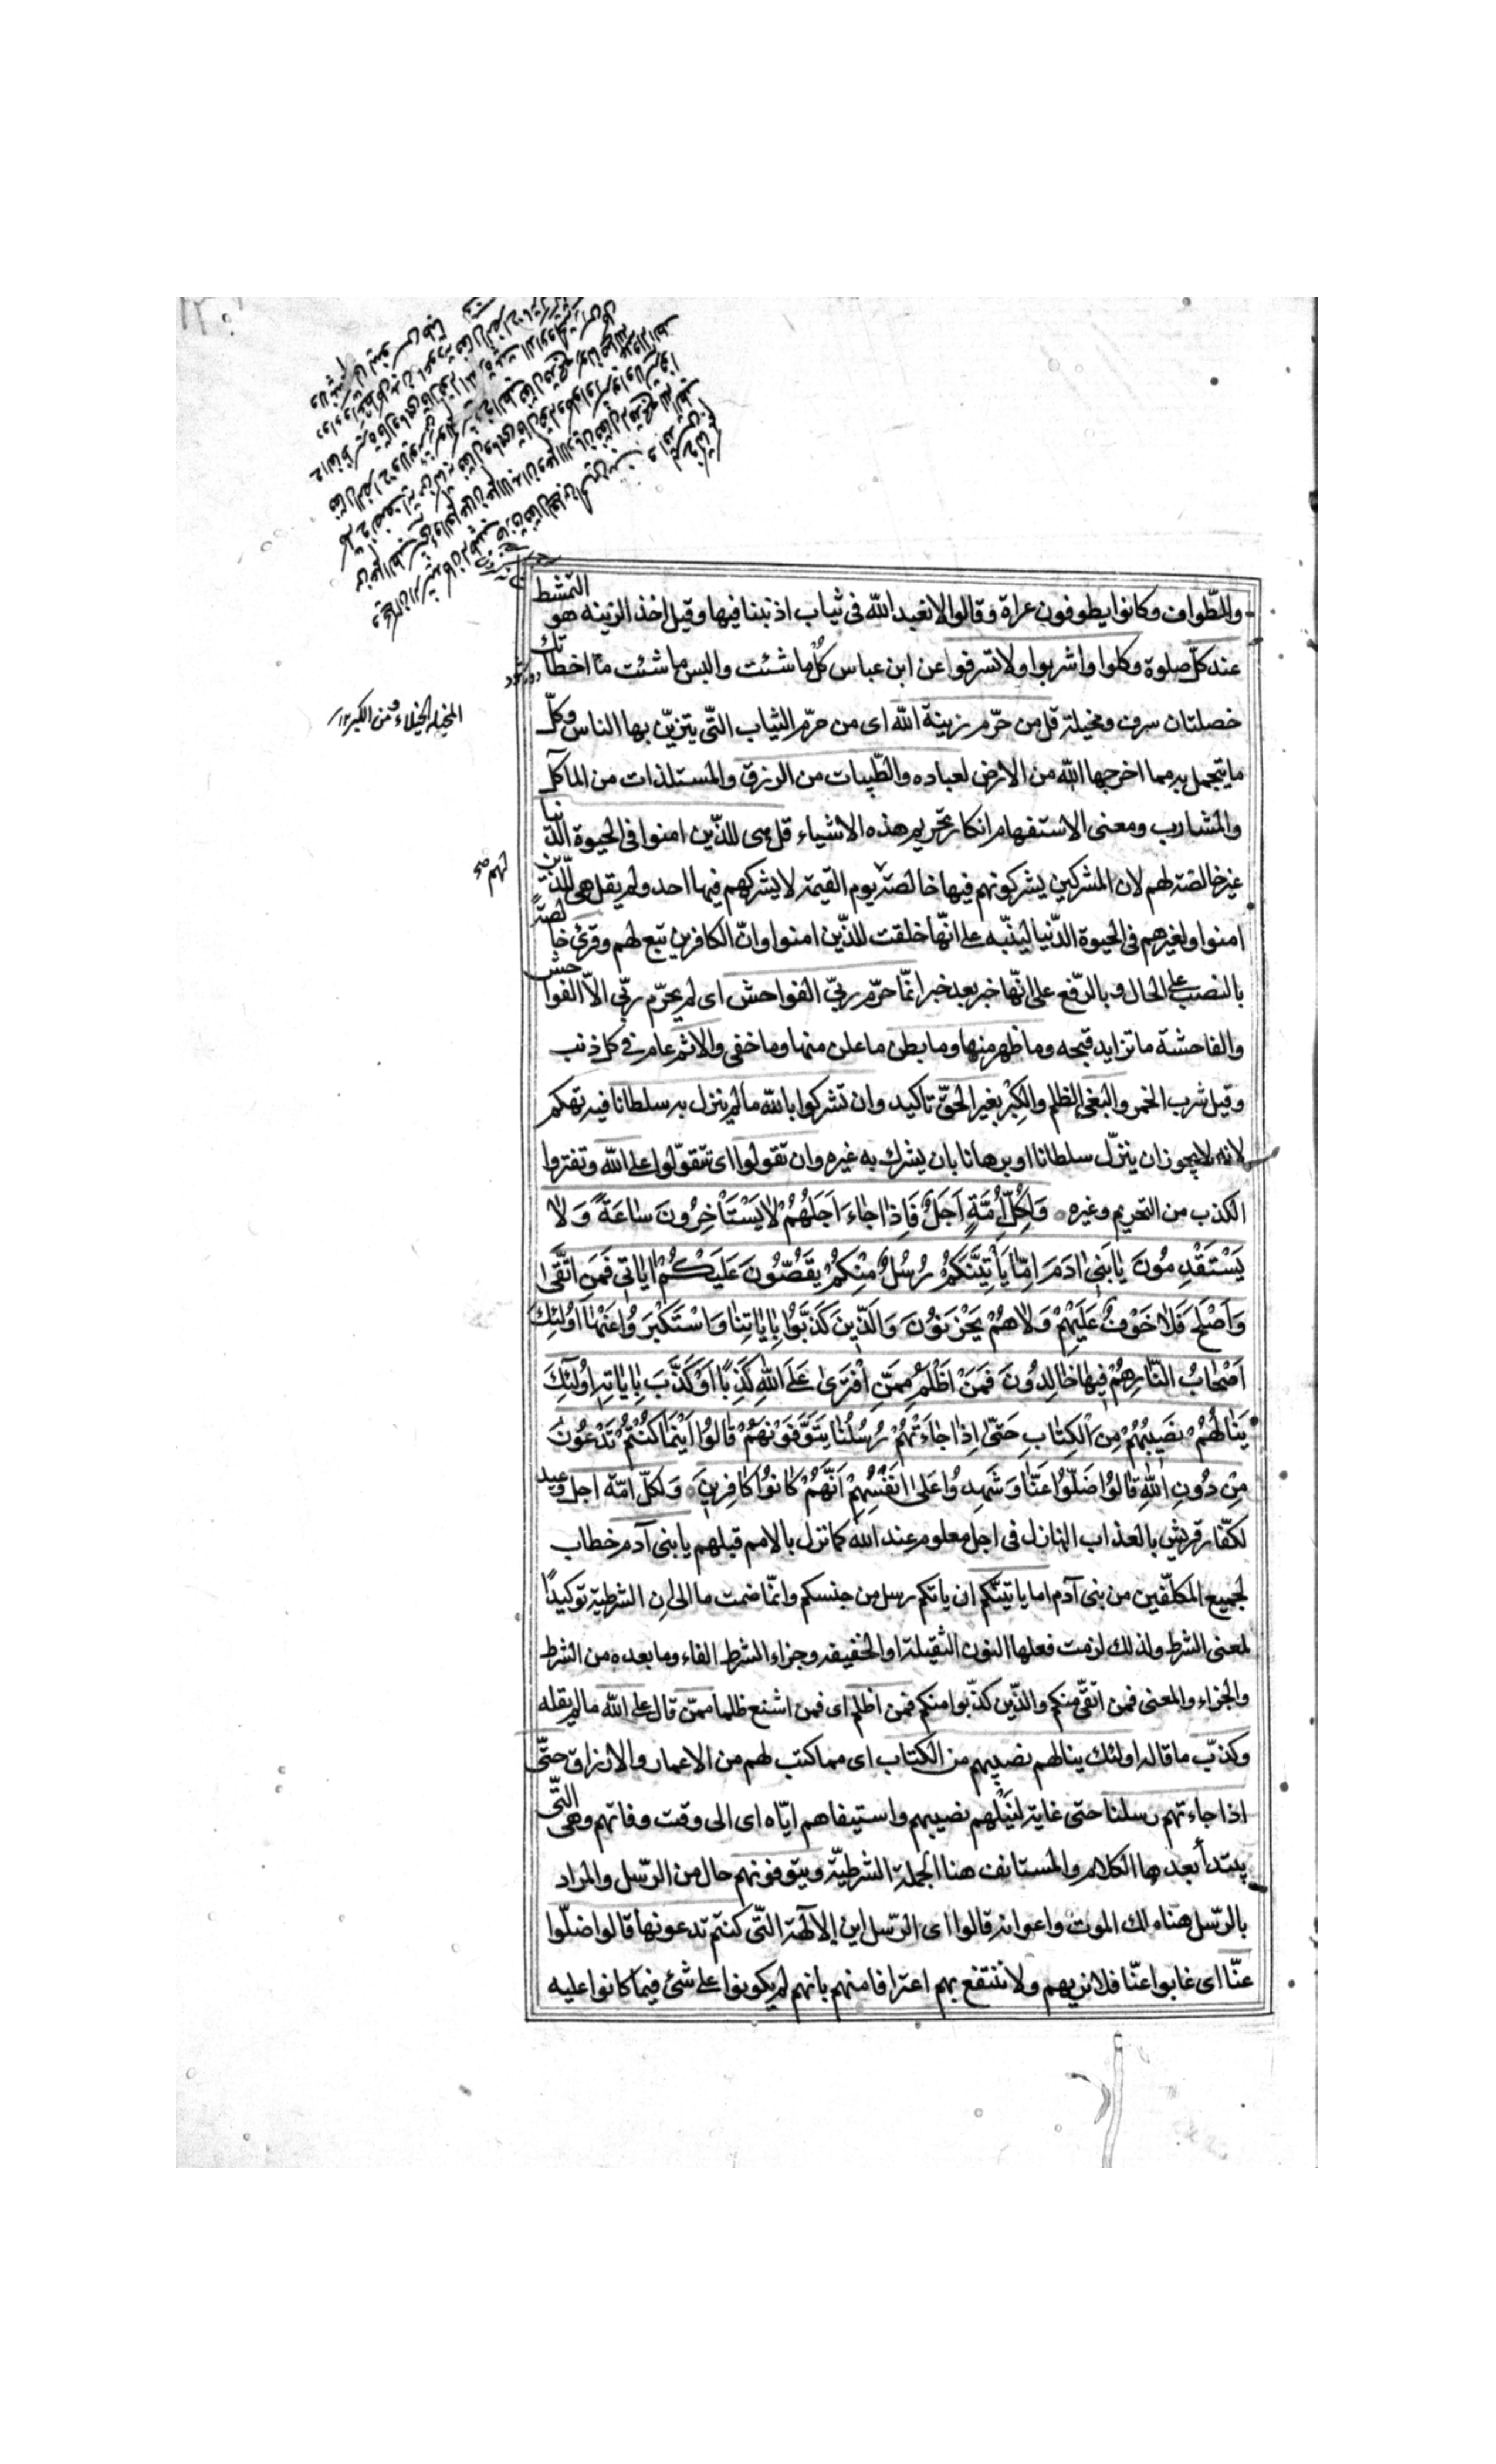 والطّواف وكانوا يطوفون عراة وقالوا لا نعبد الله فى ثياب اذنبنا فيها وقيل اخذ الزينه هو التمشط
عند كلّ صلوة وكلوا واشربوا ولا تسرفوا عن ابن عباس كُل ما شئت والبس ما شئت ما اخطاتك
خصلتان سرف ومخيلة قل من حرّم زينة الله اى من حرّم الثياب التّى يتزيّن بها الناس وكلّ
ما يتجمل به مما اخرجها الله من الارض لعباده والطّيبات من الرزق والمستلذات من المآكل
والمشارب ومعنى الاستفهام انكار تحريم هذه الاشياء قل هى للذّين امنوا فى الحيوة الدّنيا
غير خالصة لهم لان المشركين يشركونهم فيها خالصة يوم القيمة لا يشركهم فيها احد ولم يقل هى للذّين
امنوا ولغيرهم فى الحيوة الدّنيا لينبّه على انّها خلقت للذّين امنوا وانّ الكافرين تبع لهم وقرئ خالصةً
بالنصب على الحال وبالرّفع على انّها خبر بعد خبر انمّا حرّم ربّى الفواحش اى لم يحرّم ربّى الاّ الفواحش
والفاحشة ما تزايد قبحه وما ظهر منها وما بطن ما علن منها وما خفى والاثم عام فى كل ذنب
وقيل شرب الخمر والبغى الظلم والكِبْر بغير الحقّ تاكيد وان تشركوا بالله ما لم ينزل به سلطانا فيه تهكم
لانه لا يجوز ان ينزّل سلطانا او برهانا بان يشرك به غيره وان تقولوا اى تتقوّلوا على الله وتفتروا
الكذب من التحريم وغيره وَلِكُلِّ أُمَّةٍ اَجَلٌ فَاِذا جاءَ اَجَلُهُمْ لا يَسْتَأْخِرُونَ ساعَةً وَلا
يَسْتَقْدِمُونَ يا بَنى ادَمَ اِمّا يَأْتِيَنَّكُمْ رُسُلٌ مِنْكُمْ يَقُصُّونَ عَلَيْكُمْ اياتى فَمَنِ اتَّقى
وَاَصْلَحَ فَلا خَوْفٌ عَلَيْهِمْ وَلا هُمْ يَحْزَنُونَ وَالَّذينَ كَذَّبُوا بِاياتِنا وَاسْتَكْبَرُوا عَنْها اُولئِكَ
اَصْحابُ النّارِ هُمْ فيها خالِدُونَ فَمَنْ اَظْلَمُ مِمَّنِ افْتَرى عَلَى اللهِ كَذِبًا اَوْ كَذَّبَ بِاياتِهِ اُولئِكَ
يَنالُهُمْ نَصيبُهُمْ مِنَ الْكِتابِ حَتّى اِذا جاءَتْهُمْ رُسُلُنا يَتَوَفَّوْنَهُمْ قالُوا اَيْنَما كُنْتُمْ تَدْعُونَ
مِنْ دُونِ اللهِ قالُوا ضَلّوُا عَنّا وَشَهِدُوا عَلى اَنْفُسِهِمْ اَنَّهُمْ كانُوا كافِرينَ وَلكلّ امّة اجل وعيد
لكفّار قريش بالعذاب النازل فى اجل معلوم عند الله كما نزل بالامم قبلهم يا بنى آدم خطاب
لجميع المكلّفين من بنى آدم اما ياتينّكم ان ياتكم رسل من جنسكم وانمّا ضمت ما الى ان الشرطية توكيدًا
لمعنى الشرط ولذلك لزمت فعلها النون الثقيلة او الخفيفه وجزاء الشرط الفاء وما بعده من الشرط
والجزاء والمعنى فمن اتقّى منكم والذّين كذّبوا منكم فمن اظلم اى فمن اشنع ظلما ممّن قال على الله ما لم يقله
وكذّب ما قاله اولئك ينالهم نصيبهم من الكتاب اى مما كتب لهم من الاعمار والارزاق حتّى
اذا جاءتهم رسلنا حتى غاية لنَيْلهم نصيبهم واستيفاهم ايّاه اى الى وقت وفاتهم وهى التّى
يبتدأ بعدها الكلام والمستانف هنا الجملة الشرطيّة ويتوفونهم حال من الرّسل والمراد
بالرّسل هنا ملك الموت واعوانه قالوا اى الرّسل اين الآلهة التّى كنتم تدعونها قالوا ضلّوا
عنّا اى غابوا عنّا فلا نريهم ولا ننتفع بهم اعترافا منهم بانهم لم يكونوا على شئ فيما كانوا عليه
المخيلة الخيلاء من الكبر ١٢
لهم صح